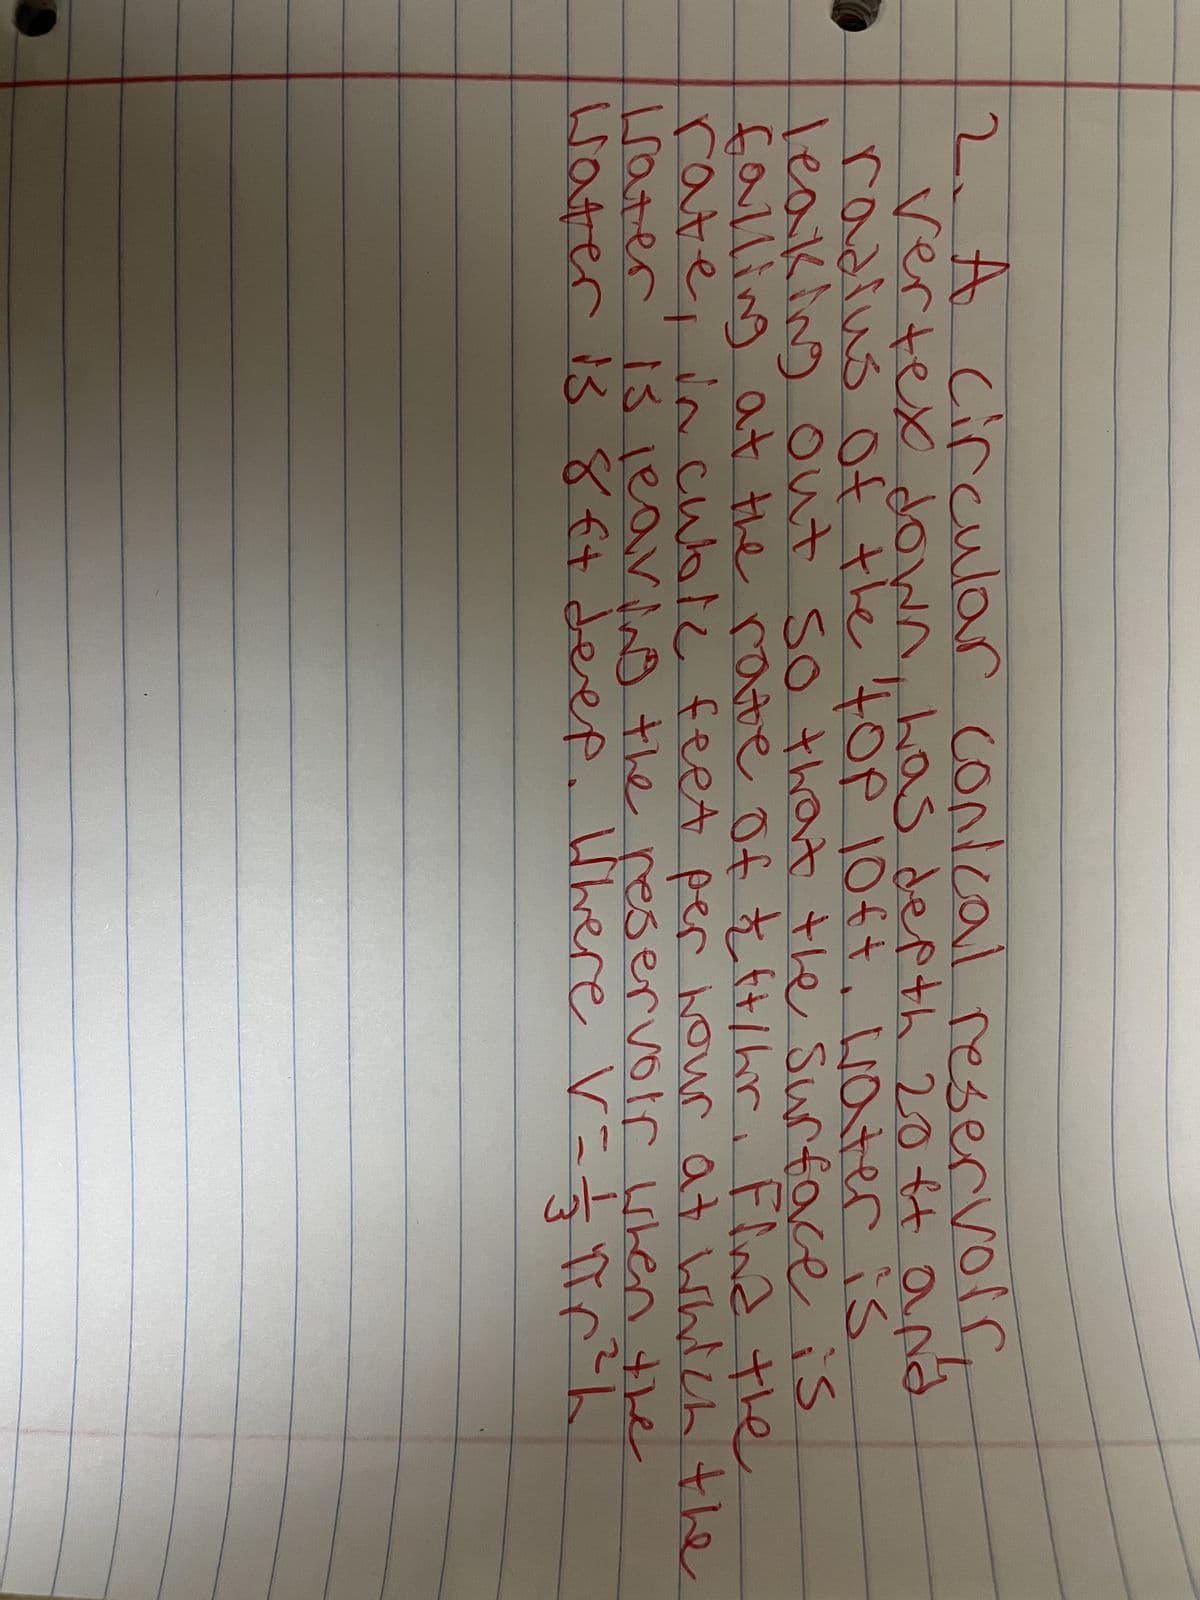 2. A circular conical reservoir,
vertex down, has depth 20 ft and
radius of the top 10ft. Water is
leaking out so that the surface is
falling at the rate of ½ ft/hr. Find the
rate, in cubic feet per hour at which the
water is leaving the reservoir when the
water is 8 ft deep. Where V = 1/3 πr²h